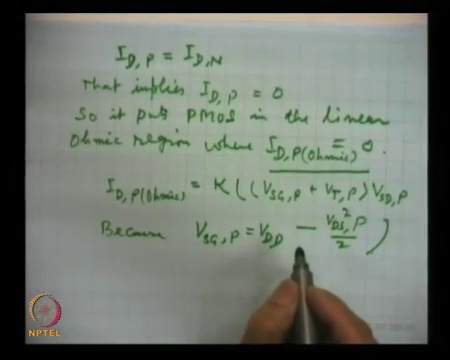 I_D,P = I_D,N
That implies I_D,P = 0
So it puts PMOS in the linear
Ohmic region where I_D,P(Ohmic) = 0.
I_D,P(Ohmic) = K((V_SG,P + V_T,P) V_SD,P
Because V_SG,P = V_DD — V_DS,P²/2)
NPTEL